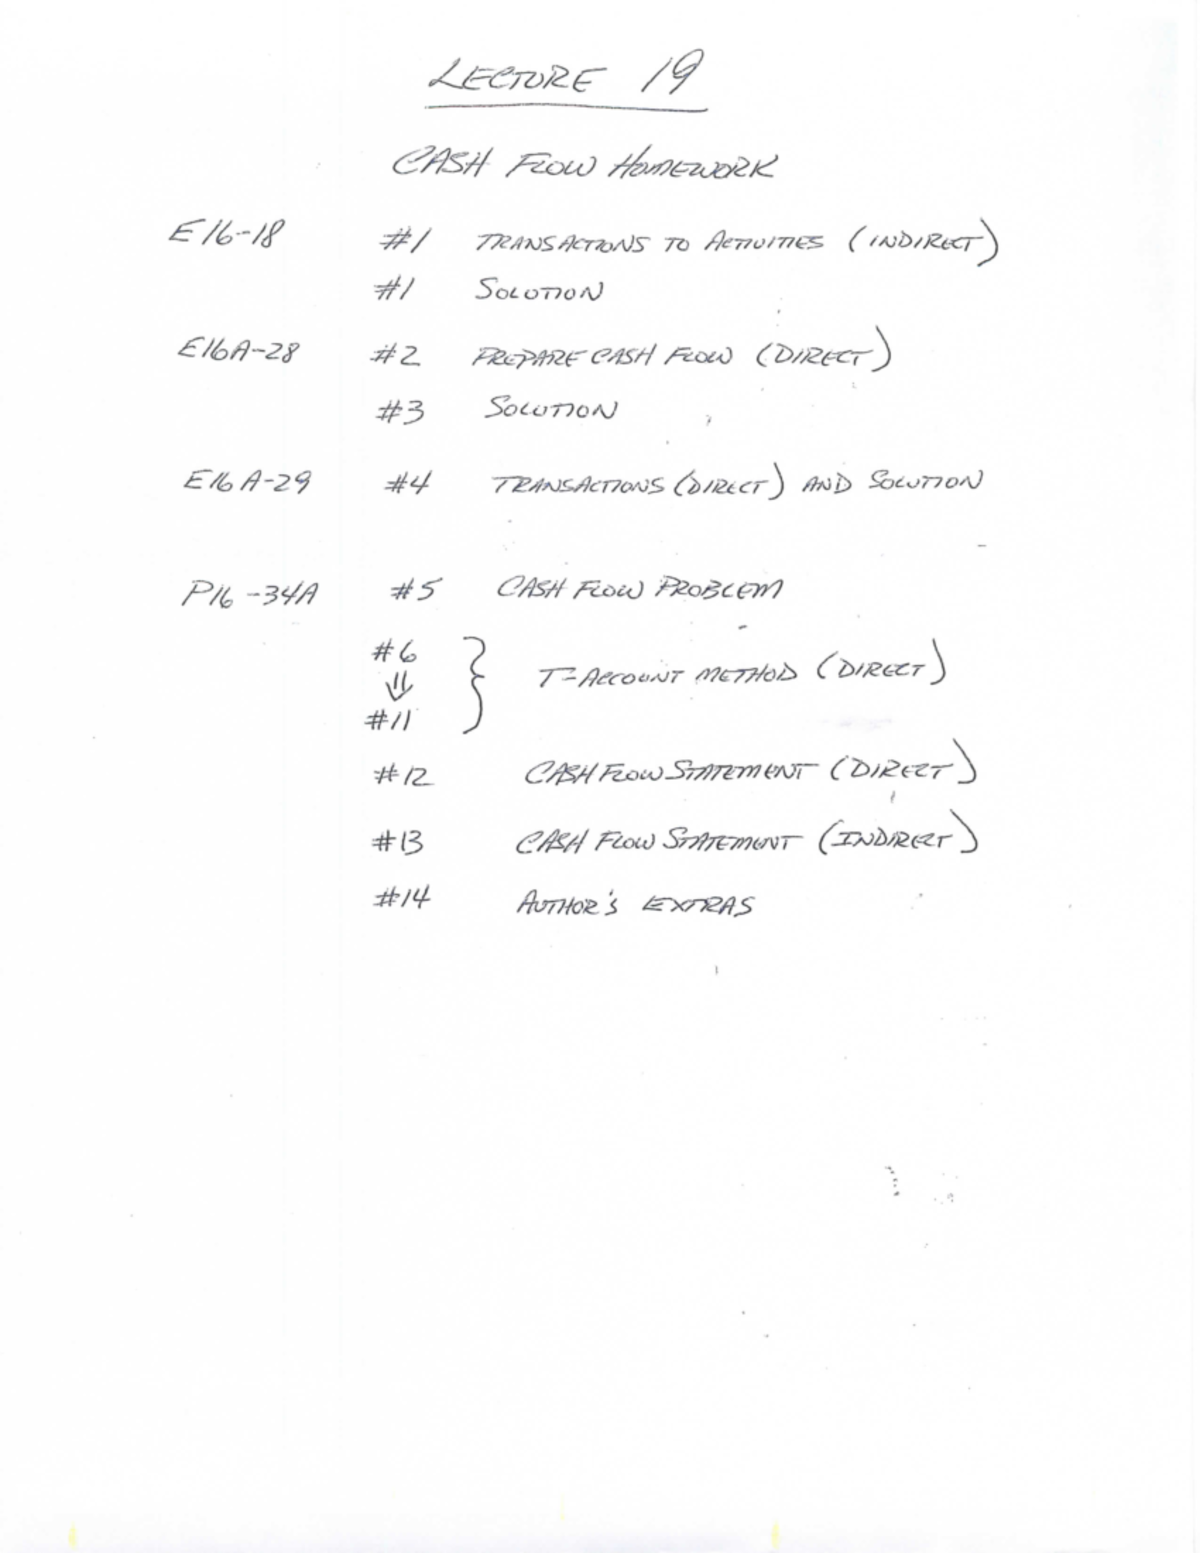 LECTURE 19
CASH FLOW HOMEWORK
E16-18 #1 TRANSACTIONS TO ACTIVITIES (INDIRECT)
#1 SOLUTION
E16A-28 #2 PREPARE CASH FLOW (DIRECT)
#3 SOLUTION
E16A-29 #4 TRANSACTIONS (DIRECT) AND SOLUTION
P16-34A #5 CASH FLOW PROBLEM
#6
⇓ } T-ACCOUNT METHOD (DIRECT)
#11
#12 CASH FLOW STATEMENT (DIRECT)
#13 CASH FLOW STATEMENT (INDIRECT)
#14 AUTHOR'S EXTRAS